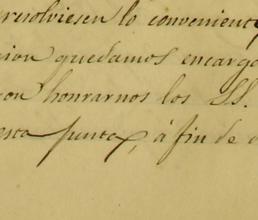 resolviesen lo conveniente
cion quedamos encarga
con honrarnos los SS.
esta Junta, á fin de